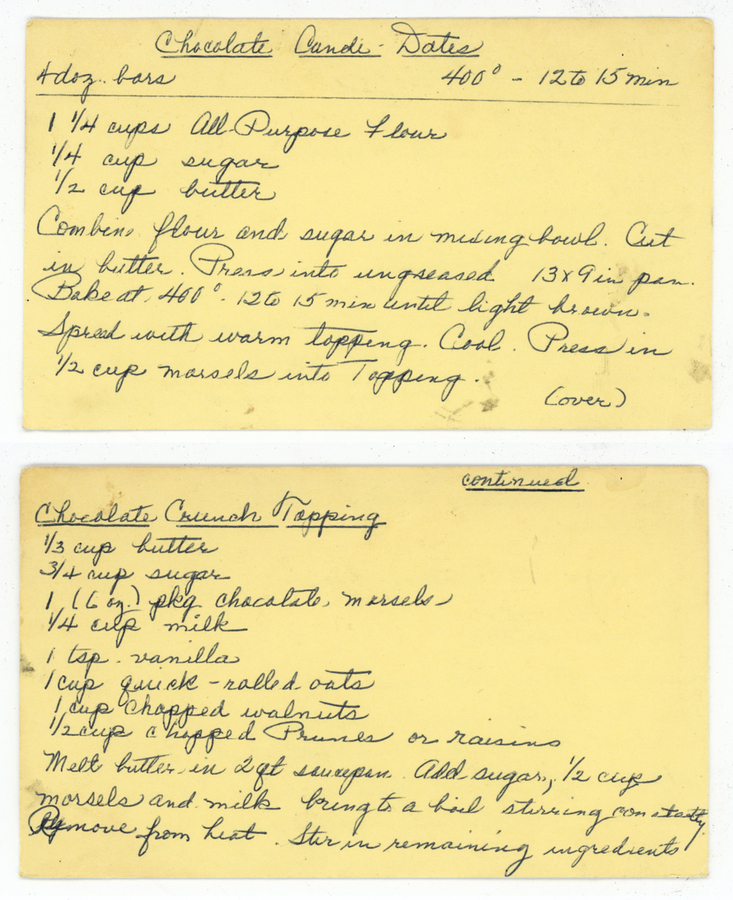 Chocolate Candi-Dates
4 doz. bars 400° - 12 to 15 min
1 1/4 cups All-Purpose Flour
1/4 cup sugar
1/2 cup butter
Combine flour and sugar in mixing bowl. Cut
in butter. Press into ungreased 13x9 in pan.
Bake at 400° - 12 to 15 min until light brown.
Spread with warm topping. Cool. Press in
1/2 cup morsels into Topping.
(over)
continued
Chocolate Crunch Topping
1/3 cup butter
3/4 cup sugar
1 (6 oz.) pkg chocolate morsels
1/4 cup milk
1 tsp. vanilla
1 cup quick-rolled oats
1 cup chopped walnuts
1/2 cup chopped Prunes or raisins
Melt butter in 2 qt saucepan. Add sugar, 1/2 cup
morsels and milk bring to a boil stirring constantly.
Remove from heat. Stir in remaining ingredients